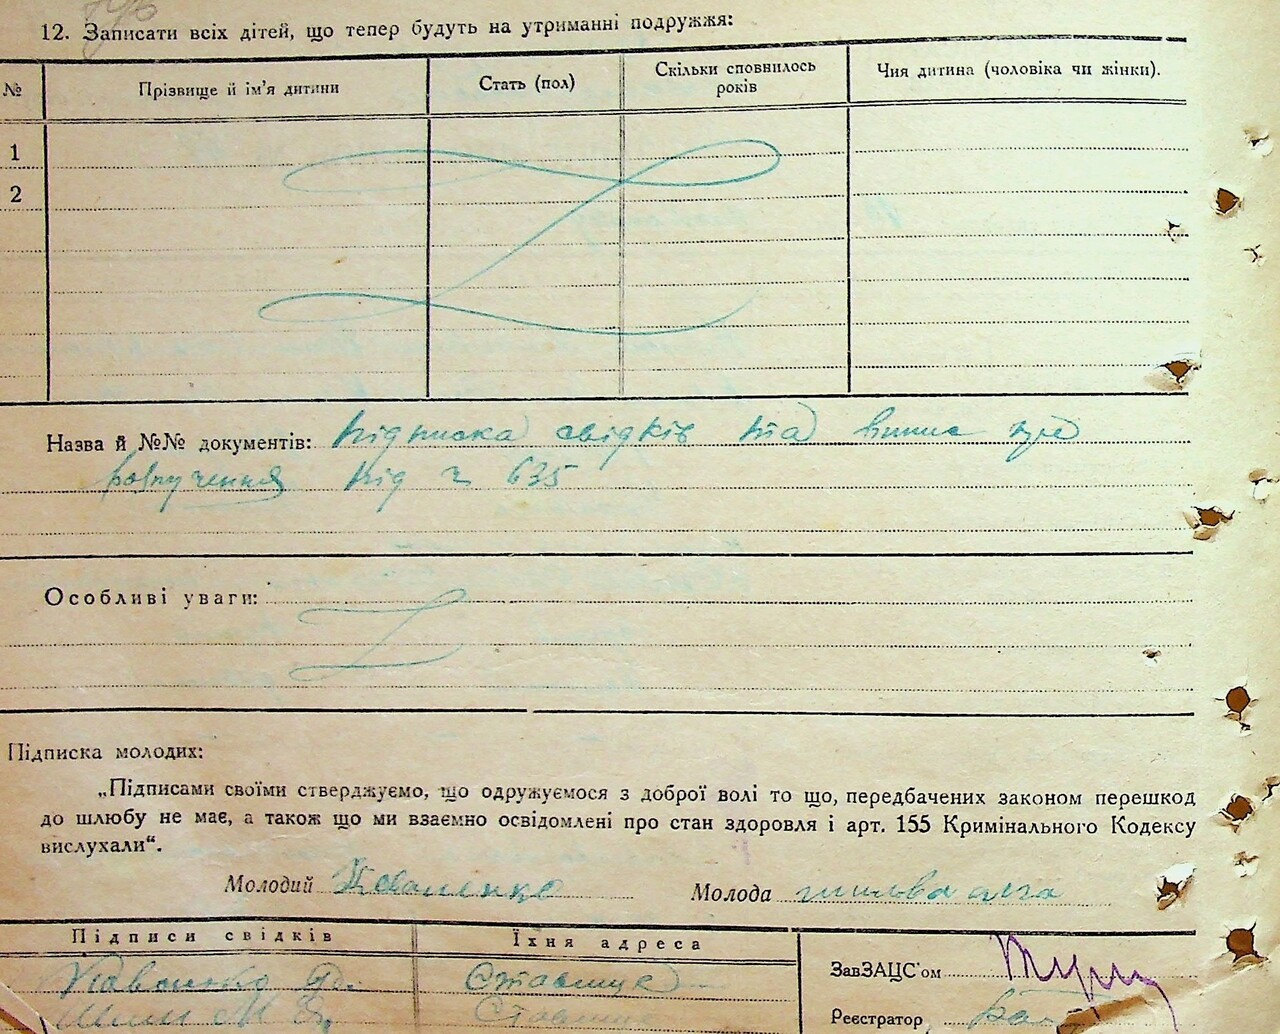 12. Записати всіх дітей, що тепер будуть на утриманні подружжя:
№ Прізвище й ім'я дитини Стать (пол) Скільки сповнилось років Чия дитина (чоловіка чи жінки).
1
2
Назва й №№ документів: підписка свідків та випис про
розлучення під ч 635
Особливі уваги:
Підписка молодих:
„Підписами своїми стверджуємо, що одружуємося з доброї волі то що, передбачених законом перешкод
до шлюбу не має, а також що ми взаємно освідомлені про стан здоровля і арт. 155 Кримінального Кодексу
вислухали“.
Молодий Коваленко Молода
Підписи свідків Їхня адреса
ЗавЗАЦС'ом
Реєстратор